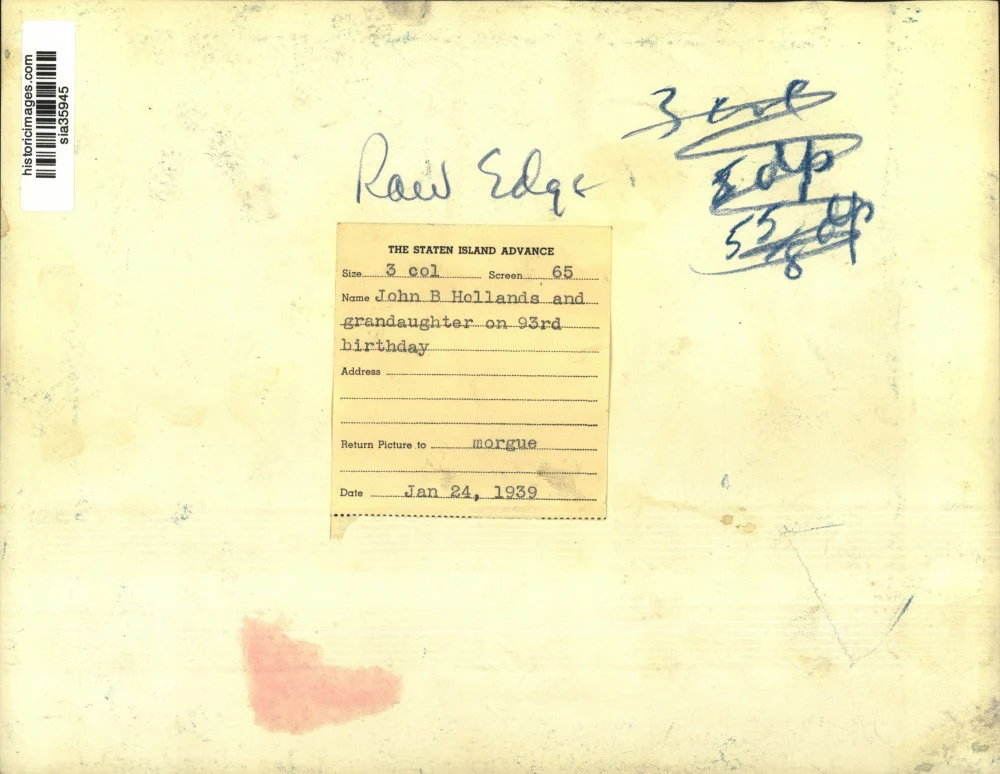 historicimages.com
sia35945
3 col
dp
Raw Edge
55 dp
8
THE STATEN ISLAND ADVANCE
Size 3 col Screen 65
Name John B Hollands and
grandaughter on 93rd
birthday
Address
Return Picture to morgue
Date Jan 24, 1939